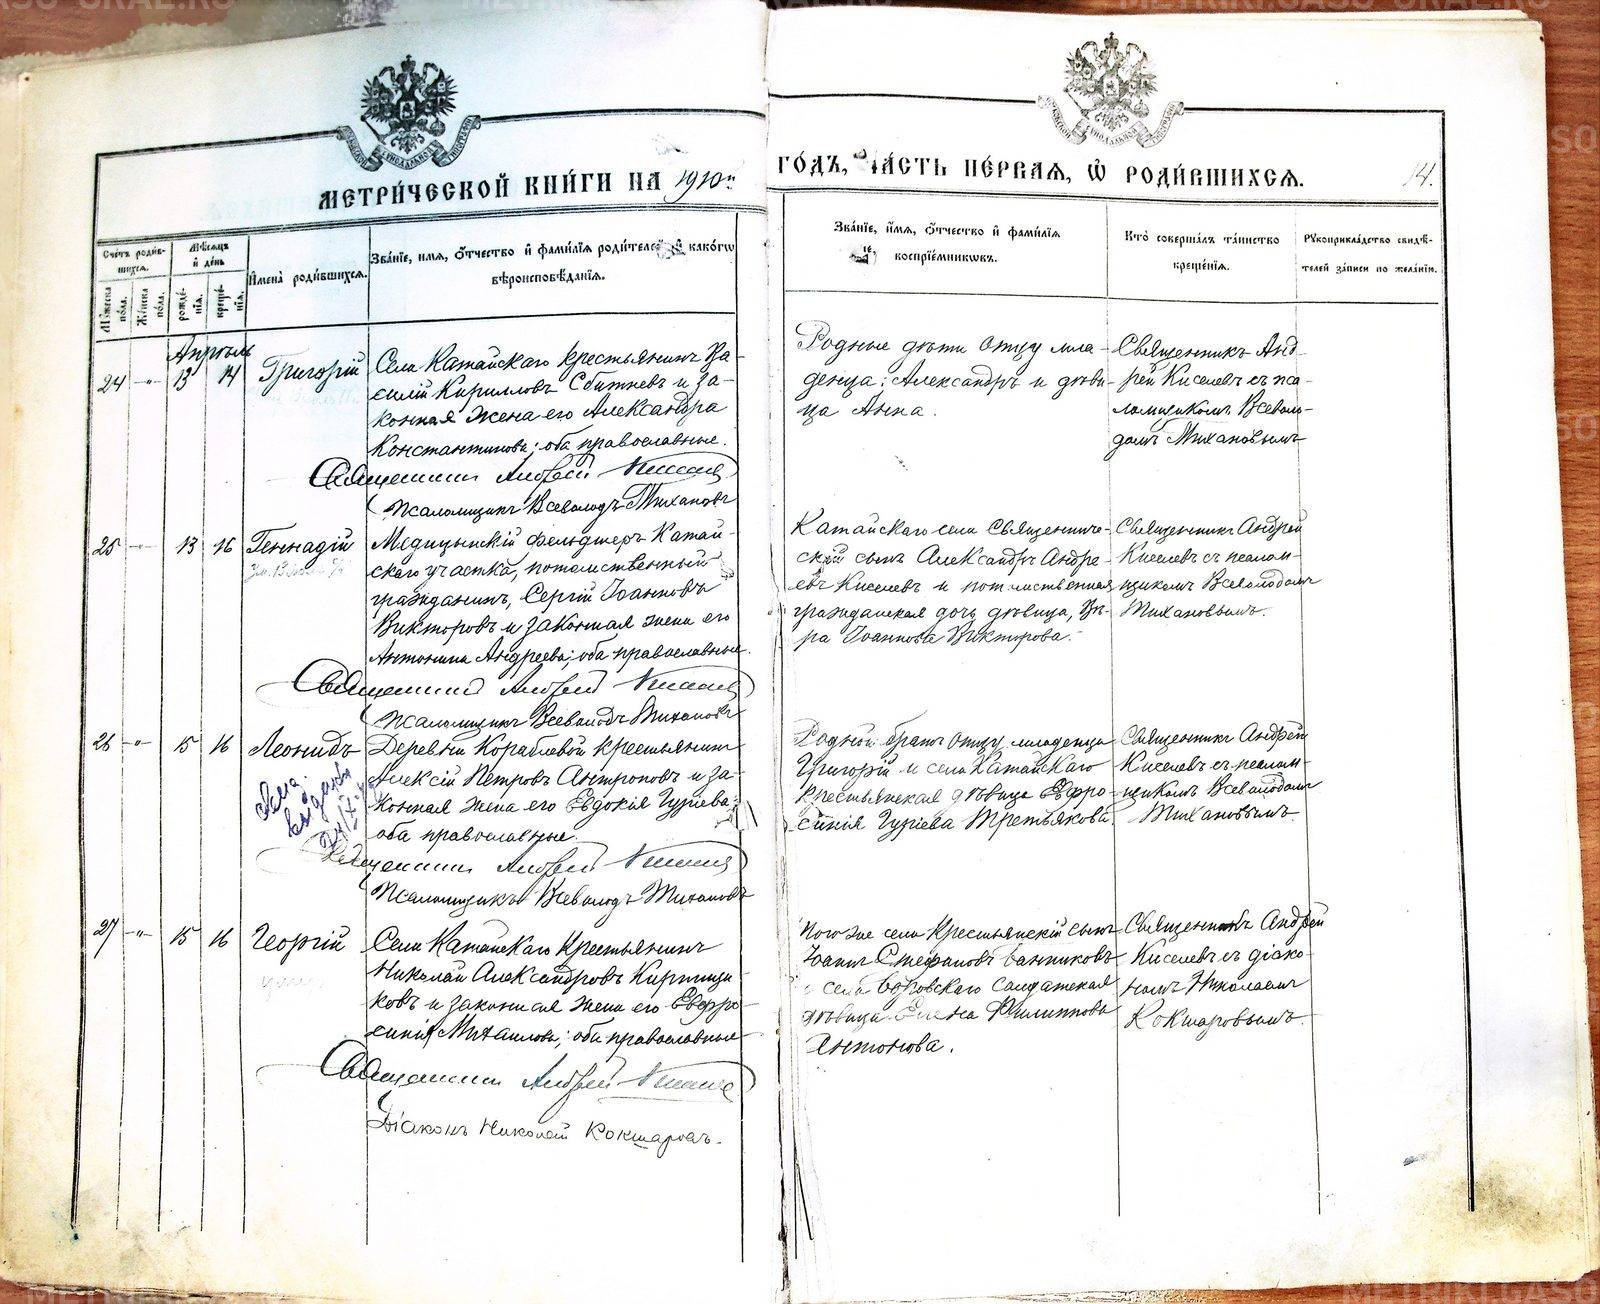 МЕТРИ́ЧЕСКОЙ КНИ́ГИ НА 1910й
ГО́ДЪ, ЧА́СТЬ ПЕ́РВАЯ, Ѡ РОДИ́ВШИХСЯ.
14.
Сче́тъ роди́в-
шихся.
Му́жеска по́ла.
Же́нска по́ла.
Мѣ́сяцъ и де́нь
рожде́-
нїя.
креще́-
нїя.
Имена̀ роди́вшихся.
Зва́нїе, имя, о́тчество и фами́лїя роди́телей и како́гѡ
вѣроисповѣ́данїя.
Зва́нїе, и́мя, о́тчество и фами́лїя
воспрїе́мникѡвъ.
Кто̀ соверша́лъ та́инство
креще́нїя.
Рукоприкла́дство свидѣ́-
телей за́писи по жела́нїю.
Апрѣль
24 -„- 13 14 Григорій
Села Катайскаго крестьянинъ Ва-
силій Кирилловъ Сбитневъ и за-
конная жена его Александра
Константинова; оба православные.
Священникъ Андрей Киселевъ
Псаломщикъ Всеволодъ Тихановъ
Родные дѣти отцу мла-
денца: Александръ и дѣви-
ца Анна.
Священникъ Анд-
рей Киселевъ съ пса-
ломщикомъ Всеволо-
домъ Тихановымъ
25 -„- 13 16 Геннадій
Медицынскій фельдшеръ Катай-
скаго участка, потомственный
гражданинъ, Сергій Іоанновъ
Викторовъ и законная жена его
Антонина Андреева; оба православные.
Священникъ Андрей Киселевъ
Псаломщикъ Всеволодъ Тихановъ
Катайскаго села священниче-
скій сынъ Александръ Андре-
евъ Киселевъ и потомственная
гражданская дочь дѣвица, Вѣ-
ра Іоаннова Викторова.
Священникъ Андрей
Киселевъ съ псалом-
щикомъ Всеволодомъ
Тихановымъ.
26 -„- 15 16 Леонидъ
Деревни Кораблевой крестьянинъ
Алексій Петровъ Антроповъ и за-
конная жена его Евдокія Гуріева;
оба православные.
Священникъ Андрей Киселевъ
Псаломщикъ Всеволодъ Тихановъ
Родной братъ отцу младенца
Григорій и села Катайскаго
крестьянская дѣвица Ефро-
синія Гуріева Третьякова.
Священникъ Андрей
Киселевъ съ псалом-
щикомъ Всеволодомъ
Тихановымъ
27 -„- 15 16 Георгій
Села Катайскаго крестьянинъ
Николай Александровъ Кирпищи-
ковъ и законная жена его Евфро-
синія Михаилова; оба православные
Священникъ Андрей Киселевъ
Діаконъ Николай Кокшаровъ.
Того же села крестьянскій сынъ
Іоаннъ Стефановъ Банниковъ
и села Боровскаго солдатская
дѣвица Елена Филиппова
Антонова.
Священникъ Андрей
Киселевъ съ діако-
номъ Николаемъ
Кокшаровымъ.